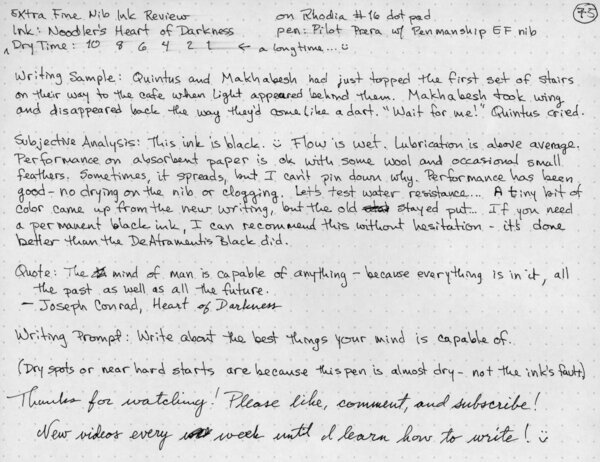 Extra Fine Nib Ink Review on Rhodia #16 dotpad 73
Ink: Noodler's Heart of Darkness pen: Pilot Prera w/ Penmanship EF nib
Dry Time: 10 8 6 4 2 1 ← a long time...
Writing Sample: Quintus and Makhabesh had just topped the first set of stairs
on their way to the cafe when Light appeared behind them. Makhabesh took wing
and disappeared back the way they'd come like a dart. "Wait for me!" Quintus cried.
Subjective Analysis: This ink is black. Flow is wet. Lubrication is above average.
Performance on absorbent paper is ok with some wool and occasional small
feathers. Sometimes, it spreads, but I can't pin down why. Performance has been
good - no drying on the nib or clogging. Let's test water resistance... A tiny bit of
color came up from the new writing, but the old stayed put... If you need
a permanent black ink, I can recommend this without hesitation - it's done
better than the DeAtramentis Black did.
Quote: The mind of man is capable of anything - because everything is in it, all
the past as well as all the future.
- Joseph Conrad, Heart of Darkness
Writing Prompt: Write about the best things your mind is capable of.
(Dry spots or near hard starts are because this pen is almost dry - not the ink's fault.)
Thanks for watching! Please like, comment, and subscribe!
New videos every week until I learn how to write!